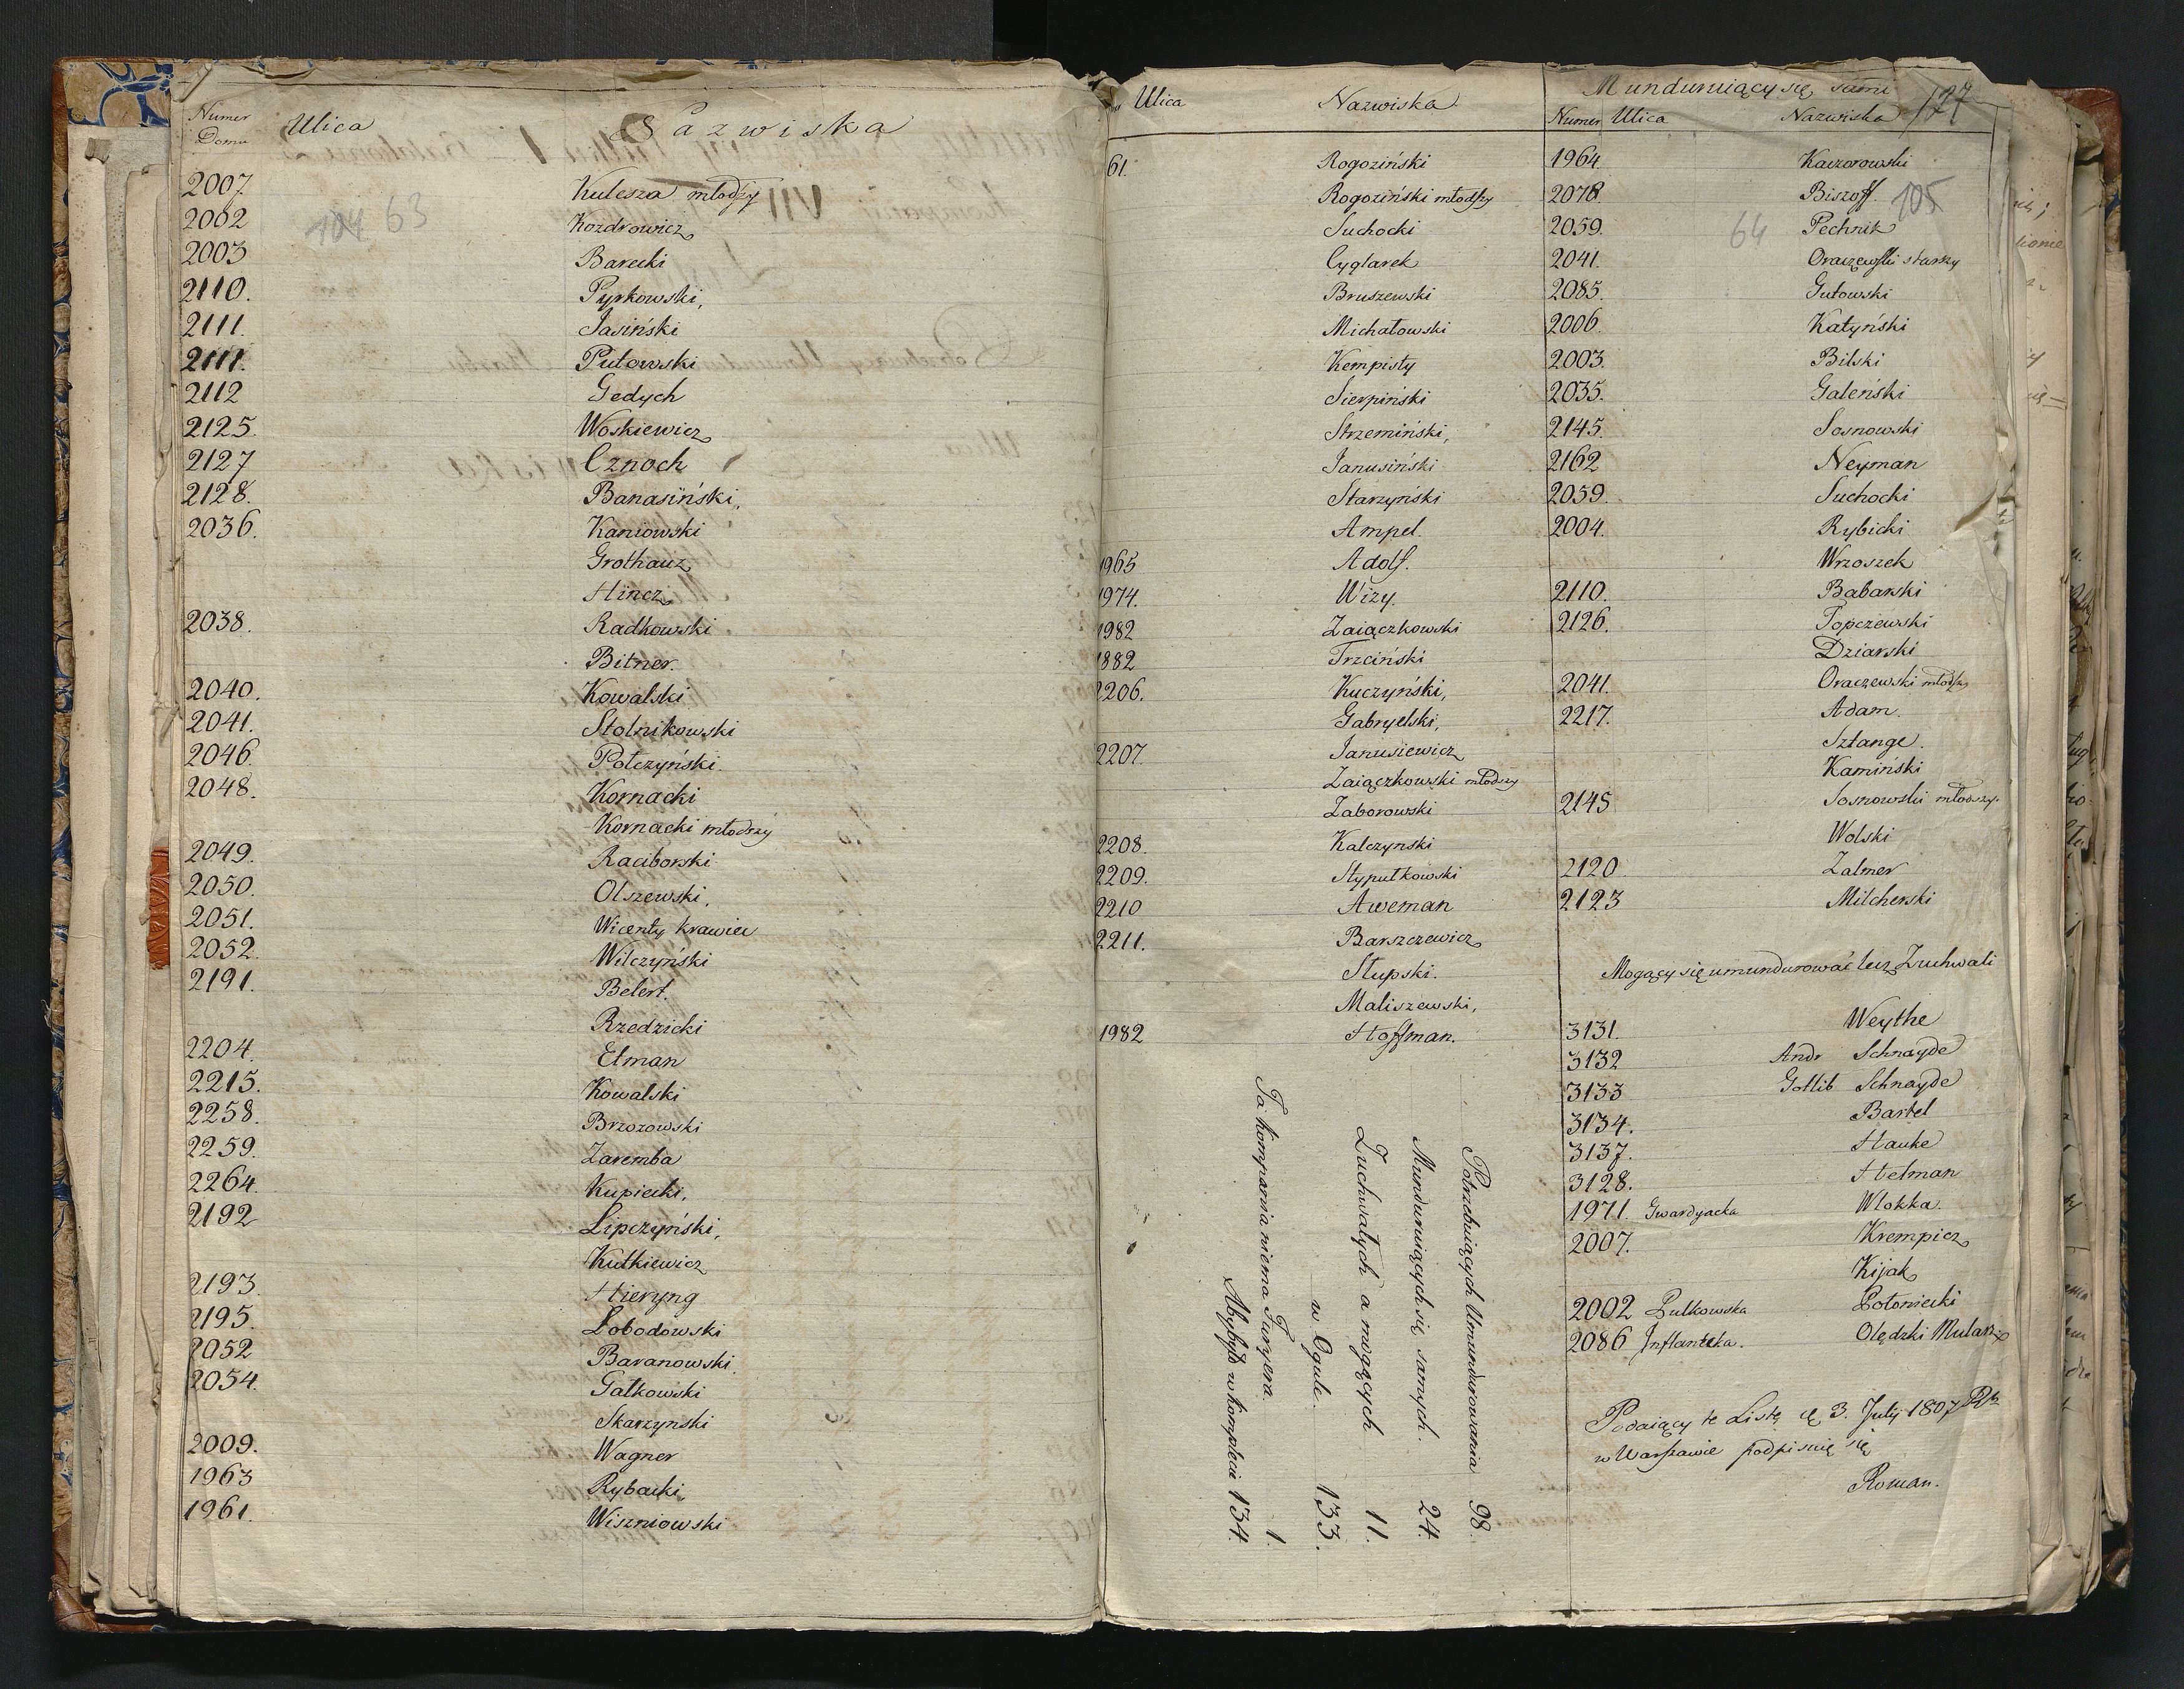 Numer Domu Ulica Nazwiska
104 63
2007 Kulesza młodszy
2002 Kozdrowicz
2003 Barecki
2110. Pyrkowski,
2111. Jasiński
2111. Putowski
2112 Gedych
2125. Woskiewicz
2127 Cznoch
2128. Banasiński,
2036. Kaniowski
Grothauz
Hincz
2038. Radkowski
Bitner.
2040. Kowalski
2041. Stolnikowski
2046. Potczyński.
2048. Kornacki
Kornacki młodszy
2049. Raciborski
2050. Olszewski,
2051. Wicenty Krawiec
2052. Wilczyński
2191. Belert.
Rzedzicki
2204. Elman
2215. Kowalski
2258. Brzozowski
2259. Zaremba
2264. Kupiecki,
2192 Lipczyński,
Kutkiewicz
2193. Hieryng
2195. Łobodowski
2052 Baranowski
2054. Gałkowski
Skarzynski
2009. Wagner
1963 Rybacki,
1961. Wiszniowski
Ulica Nazwiska
61. Rogoziński
Rogoziński młodszy
Suchocki
Cyglarek
Bruszewski
Michałowski
Kempisty
Sierpiński
Strzemiński,
Janusiński
Starzyński
Ampel.
1965 Adolf.
1974. Wizy.
1982 Zaiączkowski
1882 Trzciński
2206. Kuczyński,
Gabryelski,
2207. Janusiewicz
Zaiączkowski młodszy
Zaborowski
2208. Kalczynski
2209. Stypułkowski
2210 Aweman
2211. Barszczewicz
Słupski.
Maliszewski,
1982 Hoffman.
Potrzebuiących Umundurowania 98.
Munduruiących się samych. 24.
Zuchwałych a mogących 11.
w Ogule. 133.
Ta kompania niema Furyera. 1.
Aby było w komplecie 134.
Munduruiący się sami 127
Numer Ulica Nazwiska
1964. Kaczorowski
2078. Biszoff. 105
2059. 64 Pechnik
2041. Oraczewski starszy
2085. Gutowski
2006. Katyński
2003. Bilski
2035. Galeński
2145. Sosnowski
2162 Neyman
2059. Suchocki
2004. Rybicki
Wrzoszek
2110. Babarski
2126. Topczewski
Dziarski
2041. Oraczewski młodszy
2217. Adam.
Sztange.
Kamiński
2145 Sosnowski młodszy.
Wolski
2120 Zalmer
2123 Milcherski
Mogący się umundurować lecz Zuchwali
3131. Weythe
3132 Andr Schnayde
3133 Gotlib Schnayde
3134. Bartel
3137. Hauke
3128. Helman
1971. Gwardyacka Wlokka.
2007. Krempicz
Kijak
2002 Pulkowska Połoniecki
2086 Inflantska. Olędzki Mularz
Podaiący te Listę d 3. July 1807 Rk
w Warszawie podpisuię się
Roman.